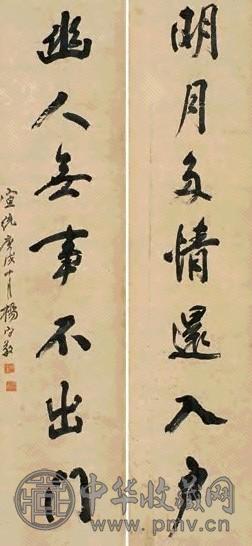 明月多情還入戶
幽人無事不出門
宣統庚戌十月楊守敬
中华收藏网
www.pmv.cn